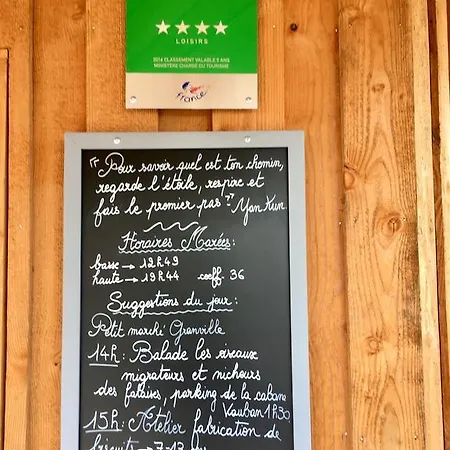 LOISIRS
2016 CLASSEMENT VALABLE 5 ANS
MINISTÈRE CHARGÉ DU TOURISME
France
"Pour savoir quel est ton chemin,
regarde l'étoile, respire et
fais le premier pas" Yan Kun
Horaires Marées:
basse → 12h49
haute → 19h44 coeff. 36
Suggestions du jour:
Petit marché Granville
14h: Balade les oiseaux
migrateurs et nicheurs
des falaises, parking de la cabane
Vauban 1h30
15h: Atelier fabrication de
biscuits → 7-13 ans